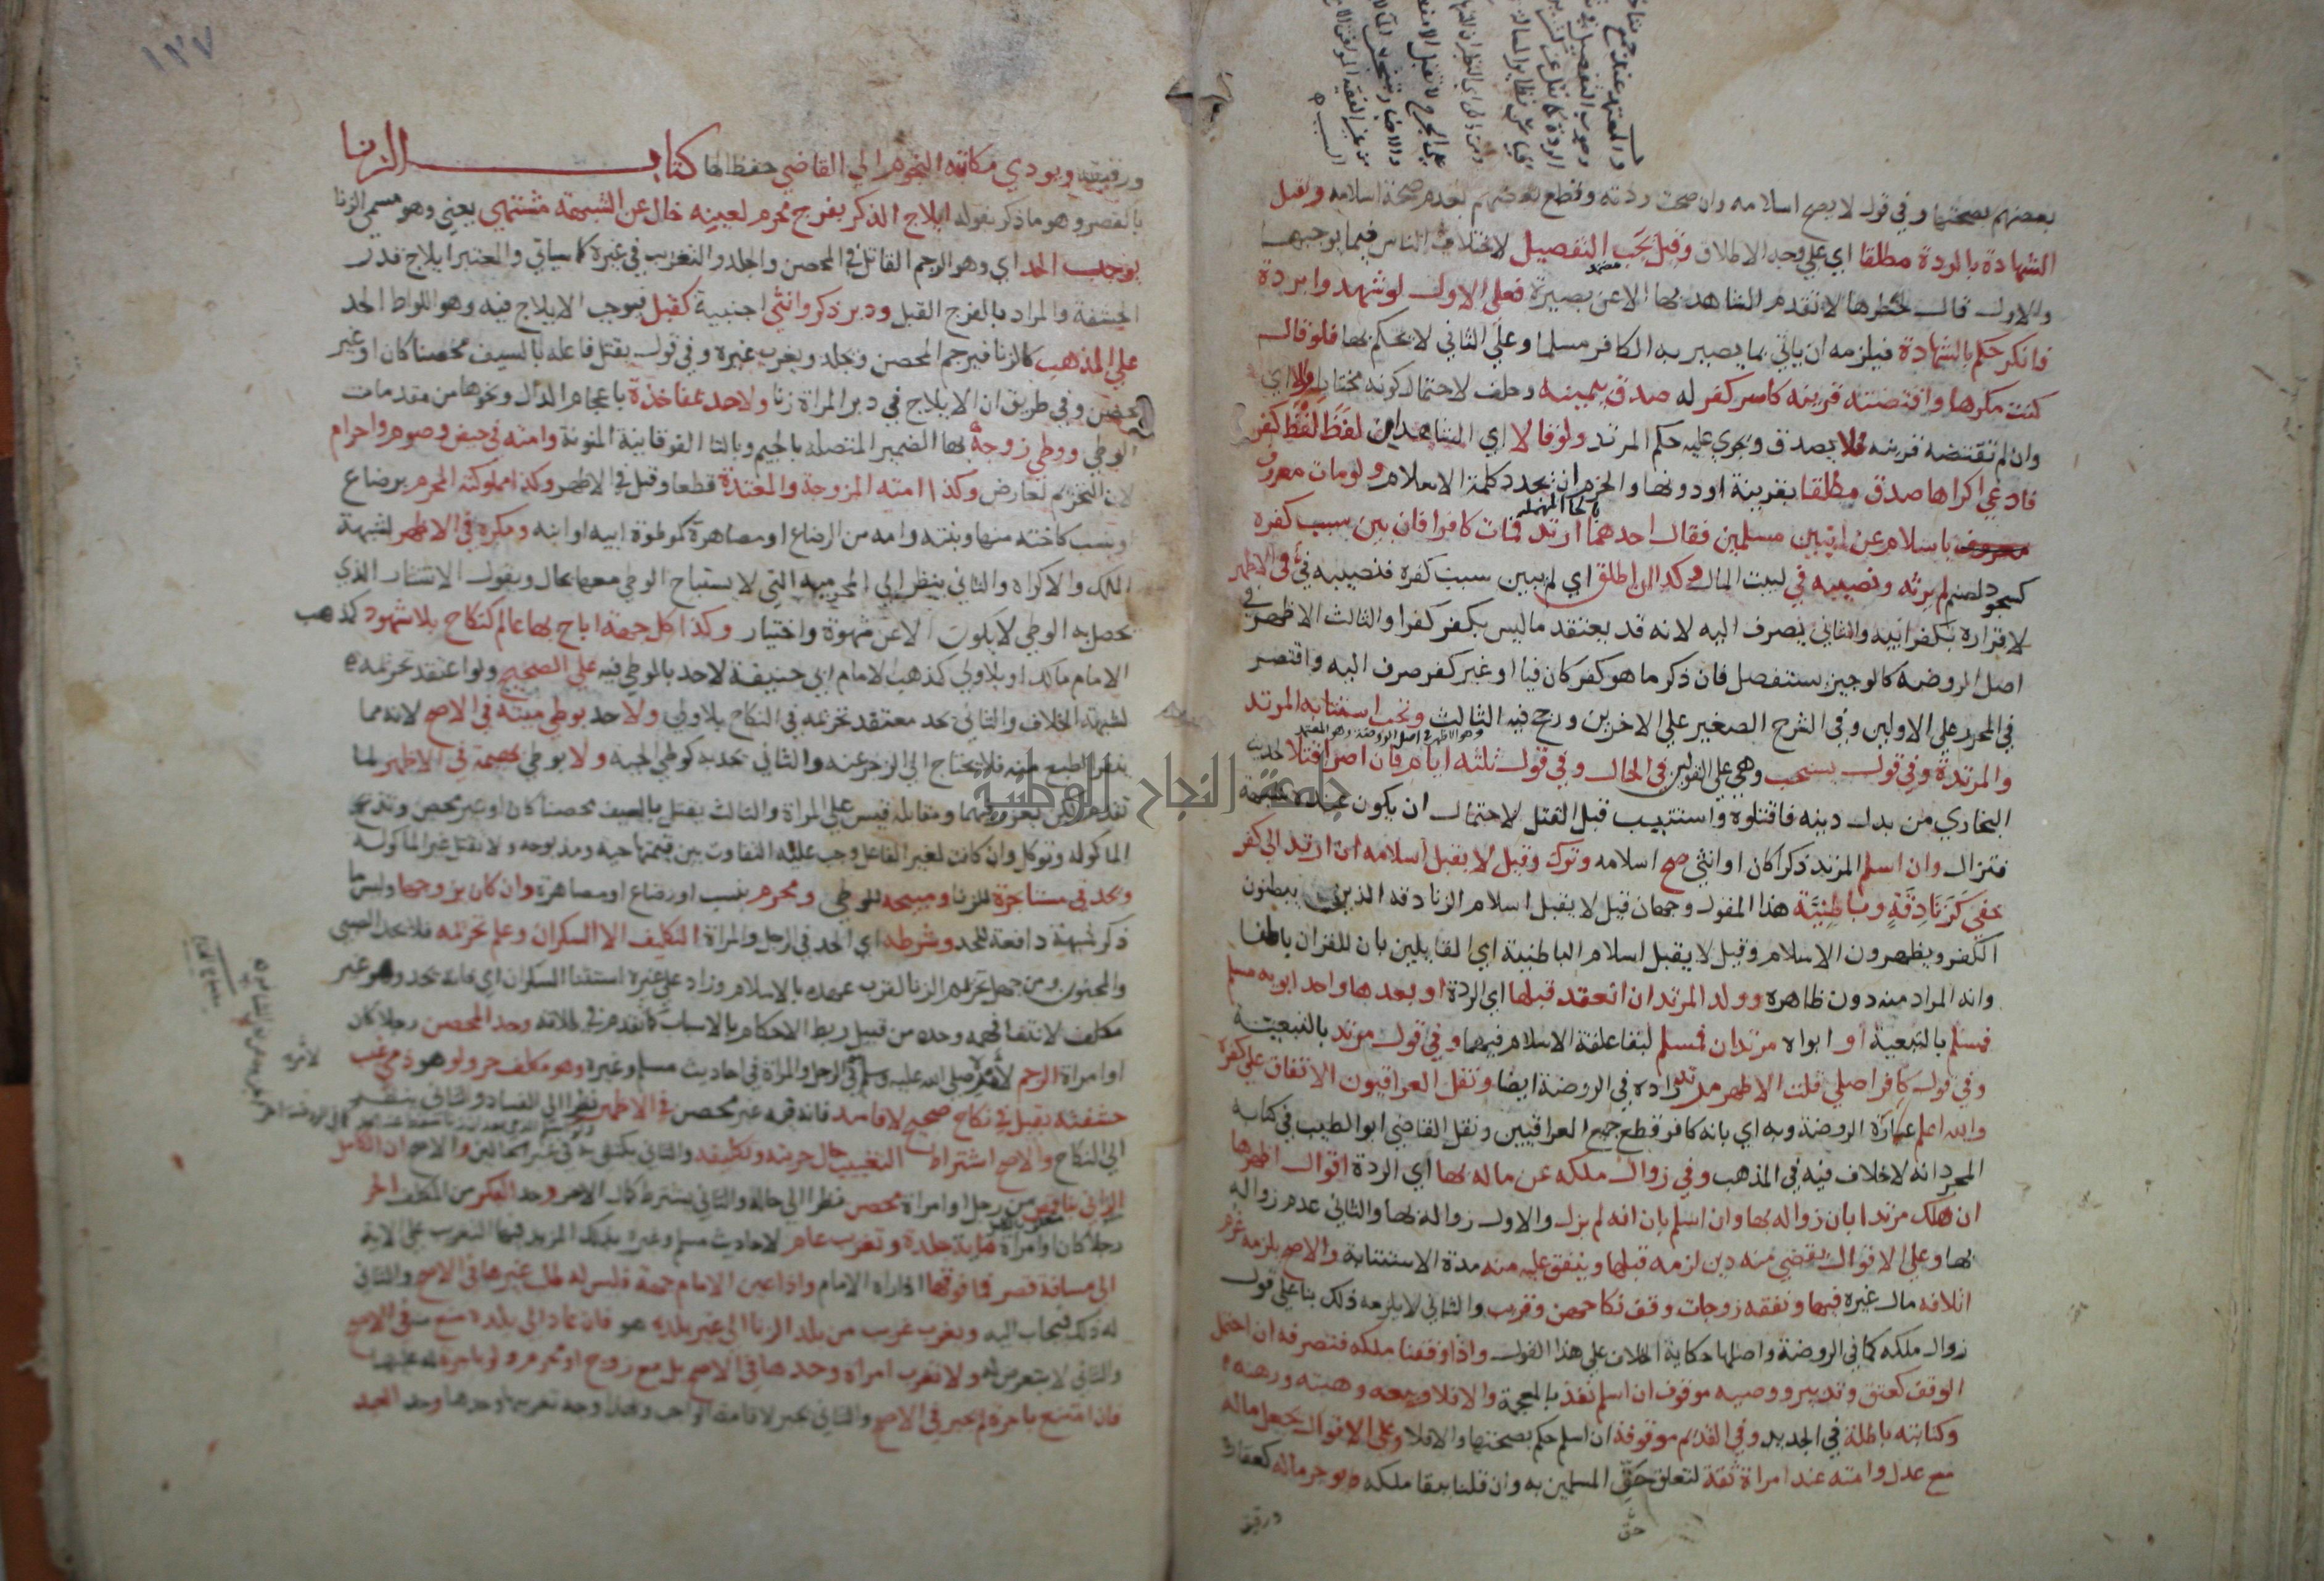 بعضهم بصحتها وفي قول لا يصح اسلامه وان صحت ردته وقطع بعضهم بعدم صحة اسلامه وتقبل
الشهادة بالردة مطلقا اي علي وجه الاطلاق وقيل يجب التفصيل لاختلاف الناس فيما يوجبها
والاول قال لخطرها لا يقدم الشاهد بها الا عن بصيرة فعلي الاول لو شهدوا بردة
فانكر حكم بالشهادة فيلزمه ان ياتي بما يصير به الكافر مسلما وعلي الثاني لا يحكم بها فلو قال
كنت مكرها واقتضته قرينة كاسر كفر له صدق بيمينه وحلف لاحتمال كونه مختارا والا اي
وان لم تقتضه قرينة فلا يصدق ويجري عليه حكم المرتد ولو قالا اي الشاهدان لفظ لفظ كفر
فادعي اكراها صدق مطلقا بقرينة او دونها والحزم ان يجدد كلمة الاسلام ولو مات معروف
باسلام عن ابنين مسلمين فقال احدهما ارتد فمات كافرا فان بين سبب كفره
كسجود لصنم لم يرثه ونصيبه في لبيت المال وكذا ان اطلق اي لم يبين سبب كفره فنصيبه فيء في الاظهر
لاقراره بكفر ابيه والثاني يصرف اليه لانه قد يعتقد ما ليس بكفر كفرا والثالث الاظهر في
اصل الروضه كالوجيز يستفصل فان ذكر ما هو كفر كان فيا او غير كفر صرف اليه واقتصر
في المحرر علي الاولين وفي الشرح الصغير علي الاخرين ورجح فيه الثالث وتجب استتابه المرتد
وهو الاظهر في اصل الروضة وهو المعتمد
والمرتدة وفي قول يستحب وهي علي القولين في الحال وفي قول ثلثه ايام فان اصرا قتلا لحديث
البخاري من بدل دينه فاقتلوه واستتيب قبل القتل لاحتمال ان يكون عنده شبهة
فتزال وان اسلم المرتد ذكرا كان او انثي صح اسلامه وترك وقيل لا يقبل اسلامه ان ارتد الي كفر
خفي كزنادقة وباطنية هذا المقول وجهان قيل لا يقبل اسلام الزنادقه الذين يبطنون
الكفر ويظهرون الاسلام وقيل لا يقبل اسلام الباطنية اي القايلين بان للقران باطنا
وانه المراد منه دون ظاهره وولد المرتد ان انعقد قبلها اي الردة او بعدها واحد ابويه مسلم
فمسلم بالتبعية او ابواه مرتدان فمسلم لبقا علقة الاسلام فيهما وفي قول مرتد بالتبعية
وفي قول كافر اصلي قلت الاظهر مرتد زاده في الروضة ايضا ونقل العراقيون الاتفاق علي كفره
والله اعلم عبارة الروضة وبه اي بانه كافر قطع جميع العراقيين ونقل القاضي ابو الطيب في كتابه
المجرد انه لا خلاف فيه في المذهب وفي زوال ملكه عن ماله بها اي الردة اقوال اظهرها
ان هلك مرتدا بان زواله بها وان اسلم بان انه لم يزل والاول زواله بها والثاني عدم زواله
بها وعلي الاقوال يقضي منه دين لزمه قبلها وينفق عليه منه مدة الاستتابة والاصح يلزمه غرم
اتلافه مال غيره فيها ونفقه زوجات وقف نكاحهن وقريب والثاني لا يلزمه ذلك بنا علي قول
زوال ملكه كما في الروضة واصلها حكاية الخلاف علي هذا القول واذا وقفنا ملكه فتصرفه ان احتمل
الوقف كعتق وتدبير ووصيه موقوف ان اسلم نفذ بالمعجمة والا فلا وبيعه وهبته ورهنه
وكتابته باطلة في الجديد وفي القديم موقوفة ان اسلم حكم بصحتها والا فلا وعلي الاقوال يجعل ماله
مع عدل وامته عند امراة ثقة لتعلق حق المسلمين به وان قلنا ببقا ملكه ويوجر ماله كعقار
حق
ورقيق
١٢٧
ورقيقه ويودي مكاتبه النجوم الي القاضي حفظا لها كتاب الزنا
بالقصر وهو ما ذكر بقوله ايلاج الذكر بفرج محرم لعينه خال عن الشبهة مشتهي يعني وهو مسمي الزنا
يوجب الحد اي وهو الرجم القاتل في المحصن والجلد والتغريب في غيره كما سياتي والمعتبر ايلاج قدر
الحشفة والمراد بالفرج القبل ودبر ذكر وانثي اجنبية كقبل فيوجب الايلاج فيه وهو اللواط الحد
علي المذهب كالزنا فيرجم المحصن ويجلد ويغرب غيره وفي قول يقتل فاعله بالسيف محصنا كان او غير
محصن وفي طريق ان الايلاج في دبر المراة زنا ولا حد بمفاخذة باعجام الذال ونحوها من مقدمات
الوطي ووطي زوجته بها الضمير المتصلة بالجيم وبالتا الفوقانية المنونة وامته في حيض وصوم واحرام
لان التحريم لعارض وكذا امته المزوجة والمعتدة قطعا وقيل في الاظهر وكذا مملوكته المحرم برضاع
او نسب كاخته منها وبنته وامه من الرضاع او مصاهرة كموطوة ابيه او ابنه ومكره في الاظهر لشبهة
الملك والاكراه والثاني ينظر الي المحرمية التي لا يستباح الوطي معها بحال ويقول الانتشار الذي
يحصل به الوطي لا يكون الا عن شهوة واختيار وكذا كل جهة اباح بها عالم كنكاح بلا شهود كمذهب
الامام مالك او بلا ولي كمذهب الامام ابي حنيفة لا حد بالوطي فيه علي الصحيح ولو اعتقد تحريمه
لشبهة الخلاف والثاني يحد معتقد تحريمه في النكاح بلا ولي ولا حد بوطي ميتة في الاصح لانه مما
ينفر الطبع منه فلا يحتاج الي الزجر عنه والثاني يحد به كوطي الحية ولا بوطي بهيمة في الاظهر لما
تقدم لكن يعزر فيهما ومقابله قيس علي المراة والثالث يقتل بالسيف محصنا كان او غير محصن وتذبح
الماكوله وتوكل وان كانت لغير الفاعل وجب عليه التفاوت بين قيمتها حية ومذبوحه ولا تقتل غير الماكولة
ويحد في مستاجرة للزنا ومبيحه للوطي ومحرم بنسب او رضاع او مصاهرة وان كان تزوجها وليس ما
ذكر شبهة دافعة للحد وشرطه اي الحد في الرجل والمراة التكليف الا السكران وعلم تحريمه فلا يحد الصبي
والمجنون ومن جهل تحريم الزنا لقرب عهده بالاسلام وزاد علي غيره استثنا السكران اي فانه يحد وهو غير
مكلف لانتفا فهمه وحده من قبيل ربط الاحكام بالاسباب كما تقدم في طلاقه وحد المحصن رجلا كان
او امراة الرجم لامره صلي الله عليه وسلم في الرجل والمراة في احاديث مسلم وغيره وهو مكلف حر ولو هو ذمي غيب
حشفته بقبل في نكاح صحيح لا فاسد فانه قربه غير محصن في الاظهر نظرا الي الفساد والثاني ينظر
الي النكاح والاصح اشتراط التغييب حال حريته وتكليفه والثاني يكتفي به في غير الحالين والاصح ان الكامل
الزاني بناقص من رجل او امراة محصن نظرا الي حاله والثاني يشترط كمال الاخر وحد البكر من المكلف الحر
رجلا كان او امراة ماية جلدة وتغريب عام لاحاديث مسلم وغيره بذلك المزيد فيها التغريب علي الاية
الي مسافة قصر فما فوقها اذا راه الامام واذا عين الامام جهة فليس له طلب غيرها في الاصح والثاني
له ذلك فيجاب اليه ويغرب غريب من بلد الزنا الي غير بلده هو فان عاد الي بلده منع في الاصح
والثاني لا يتعرض له ولا تغرب امراة وحدها في الاصح بل مع زوج او محرم ولو باجرة
فاذا امتنع باجرة لم يجبر في الاصح والثاني يجبر لاقامة الواجب وحد العبد